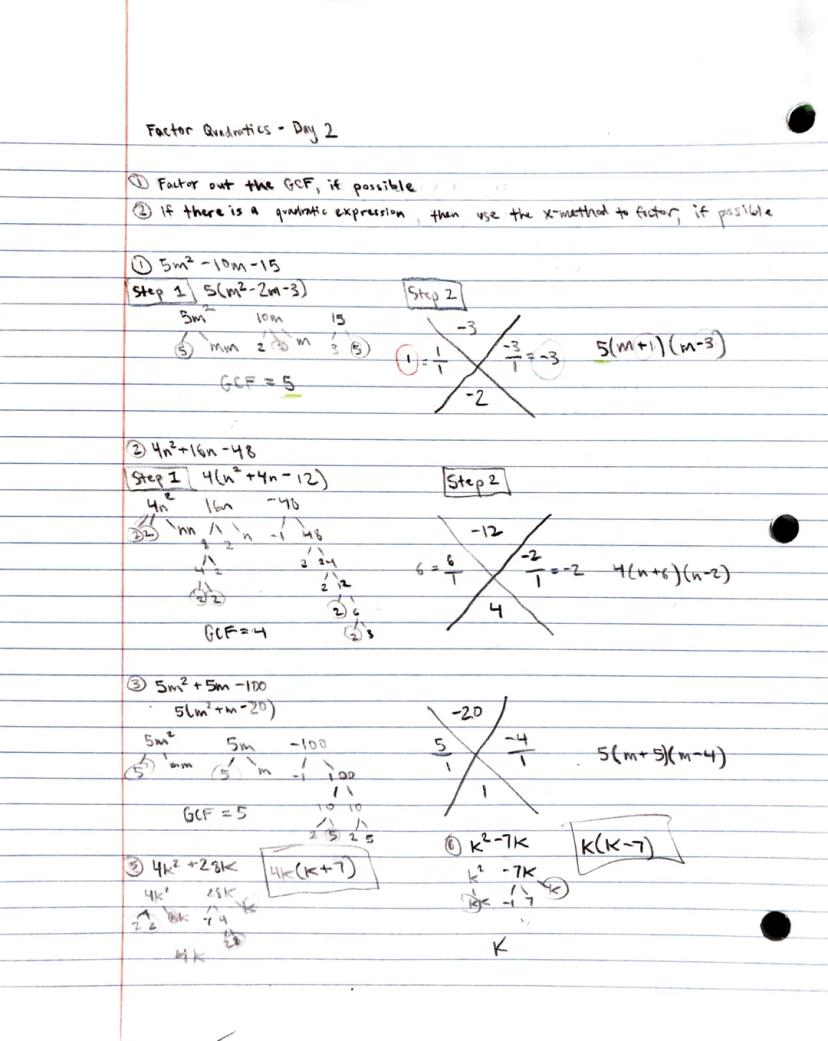 Factor Quadratics - Day 2
① Factor out the GCF, if possible
② If there is a quadratic expression, then use the x-method to factor, if possible
① 5m² - 10m - 15
Step 1 5(m² - 2m - 3)
5m² 10m 15
5 mm 2 5 m 3 5
GCF = 5
Step 2
-3
1 = 1/1 -3/1 = -3
-2
5(m+1)(m-3)
② 4n² + 16n - 48
Step 1 4(n² + 4n - 12)
4n² 16n -48
2 2 nn 8 2 n -1 48
4 2 2 24
2 2 2 12
2 6
2 3
GCF = 4
Step 2
-12
6 = 6/1 -2/1 = -2
4
4(n+6)(n-2)
③ 5m² + 5m - 100
5(m² + m - 20)
5m² 5m -100
5 mm 5 m -1 100
10 10
2 5 2 5
GCF = 5
-20
5/1 -4/1
1
5(m+5)(m-4)
⑤ 4k² + 28k 4k(k+7)
4k² 28k
2 2 kk 7 4 k
2 2
4k
⑥ k² - 7k k(k-7)
k² -7k
k k -1 7 k
k